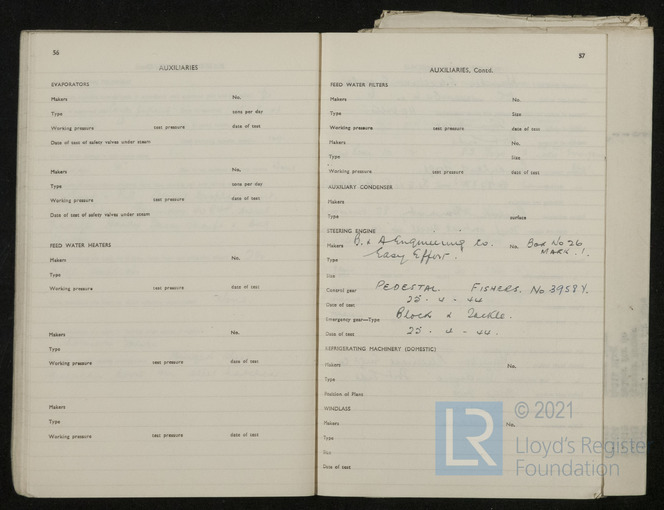 56
AUXILIARIES
EVAPORATORS
Makers No.
Type tons per day
Working pressure test pressure date of test
Date of test of safety valves under steam
Makers No.
Type tons per day
Working pressure test pressure date of test
Date of test of safety valves under steam
FEED WATER HEATERS
Makers No.
Type
Working pressure test pressure date of test
Makers No.
Type
Working pressure test pressure date of test
Makers
Type
Working pressure test pressure date of test
57
AUXILIARIES, Contd.
FEED WATER FILTERS
Makers No.
Type Size
Working pressure test pressure date of test
Makers No.
Type Size
Working pressure test pressure date of test
AUXILIARY CONDENSER
Makers
Type surface
STEERING ENGINE
Makers B. & A Engineering Co. No. Box No 26,
MARK. 1.
Type Easy Effort.
Size
Control gear PEDESTAL. FISHERS. No 3958Y.
Date of test 25 . 4 - 44
Emergency gear—Type Block & Tackle.
Date of test 25 . 4 - 44.
REFRIGERATING MACHINERY (DOMESTIC)
Makers No.
Type
Position of Plant
WINDLASS
Makers No.
Type
Size
Date of test
LR
© 2021
Lloyd's Register
Foundation